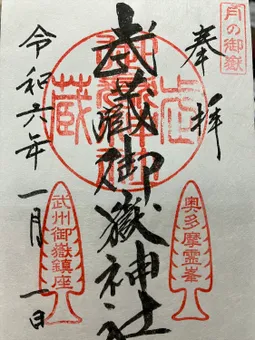 月の御嶽
奉拝
武蔵御嶽神社
令和六年一月一日
奥多摩霊峯
武州御嶽鎮座